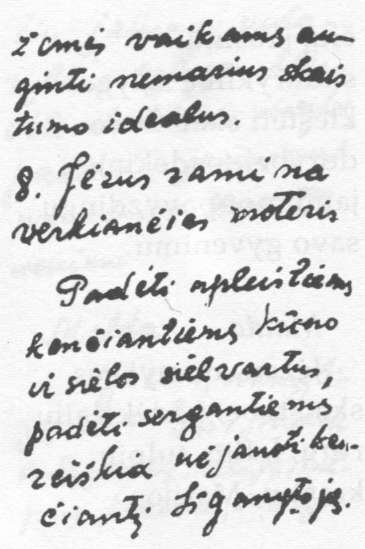 žemės vaikams au-
ginti nemarius skais
tumo idealus.
8. Jėzus ramina
verkiančias moteris
Padėti apleistiems
kenčiantiems kūno
ir sielos sielvartus,
padėti sergantiems
reiškia užjausti ken-
čiantį Išganytoją.